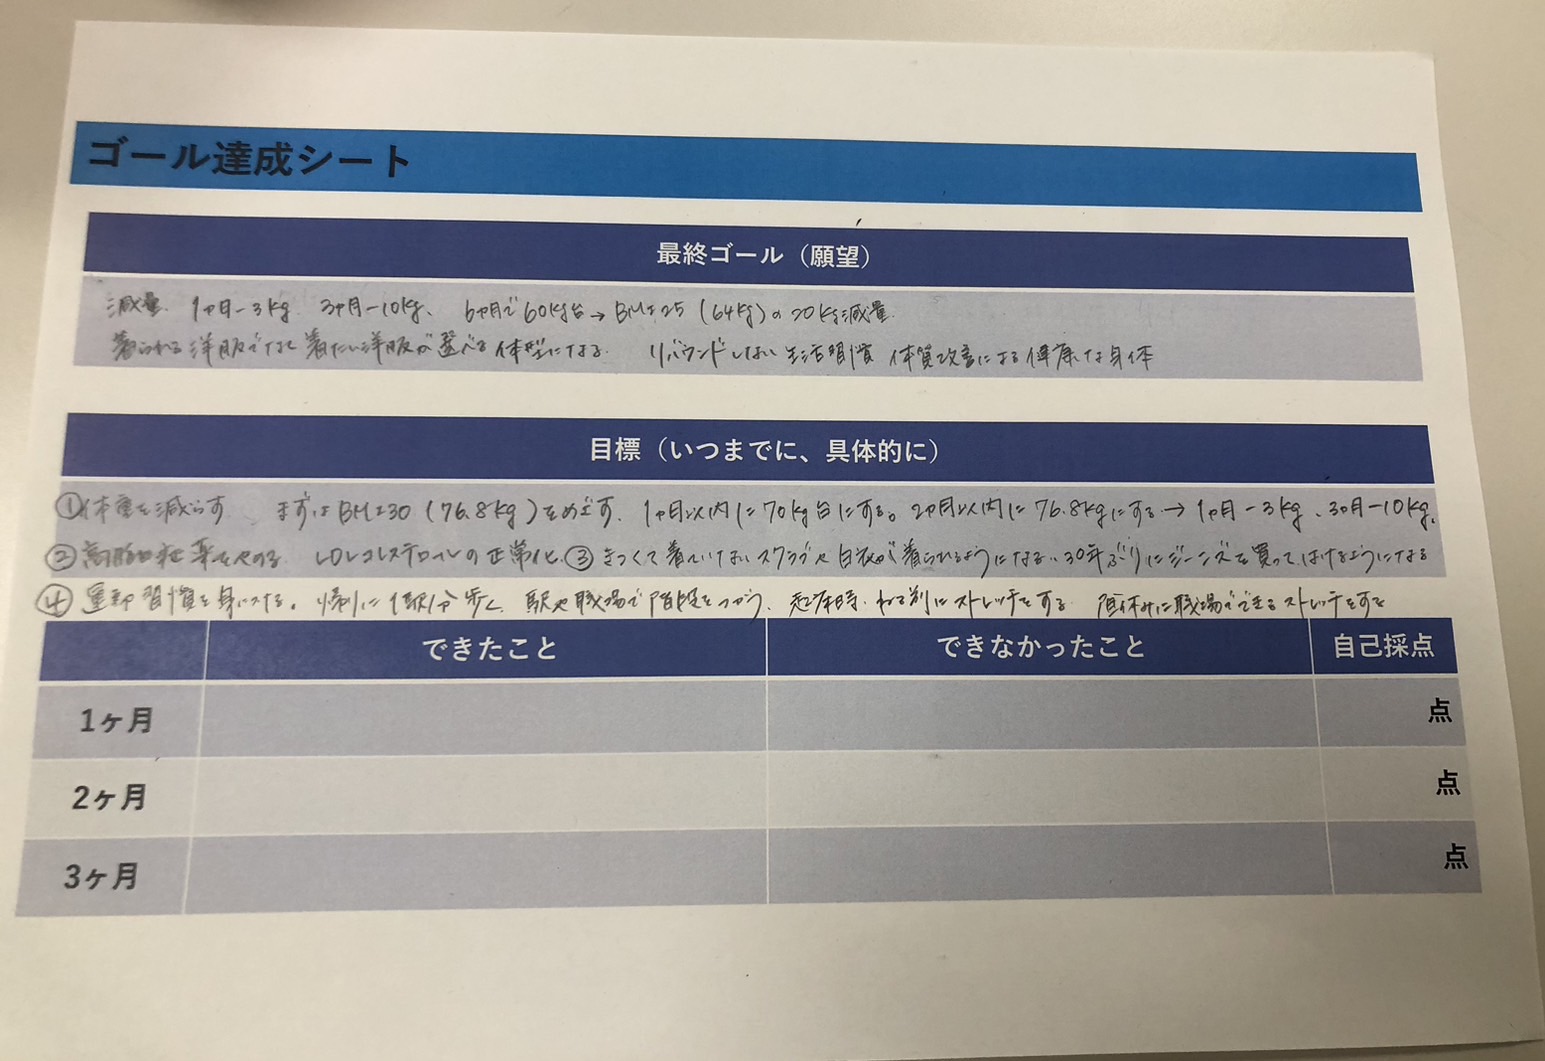 ゴール達成シート
最終ゴール（願望）
減量 1ヶ月-3kg 3ヶ月-10kg、 6ヶ月で60kg台→BMI25（64kg）の20kg減量
着られる洋服でなく着たい洋服が選べる体型になる リバウンドしない生活習慣 体質改善による健康な身体
目標（いつまでに、具体的に）
①体重を減らす まずはBMI30（76.8kg）をめざす、1ヶ月以内に70kg台にする。2ヶ月以内に76.8kgにする→1ヶ月-3kg、3ヶ月-10kg、
②高脂血症薬をやめる LDLコレステロールの正常化、③きつくて着れていないスクラブや白衣が着られるようになる、30年ぶりにジーンズを買ってはけるようになる
④運動習慣を身につける。帰りに1駅分歩く、駅や職場で階段をつかう、起床時、ねる前にストレッチをする 昼休みに職場でできるストレッチをする
できたこと できなかったこと 自己採点
1ヶ月 点
2ヶ月 点
3ヶ月 点